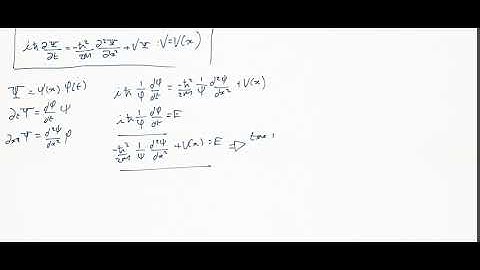 iħ ∂Ψ/∂t = -ħ²/2m ∂²Ψ/∂x² + VΨ : V=V(x)
Ψ = ψ(x).φ(t)
∂tΨ = dφ/dt ψ
∂xxΨ = d²ψ/dx² φ
iħ 1/φ dφ/dt = -ħ²/2m 1/ψ d²ψ/dx² + V(x)
iħ 1/φ dφ/dt = E
-ħ²/2m 1/ψ d²ψ/dx² + V(x) = E ⇒